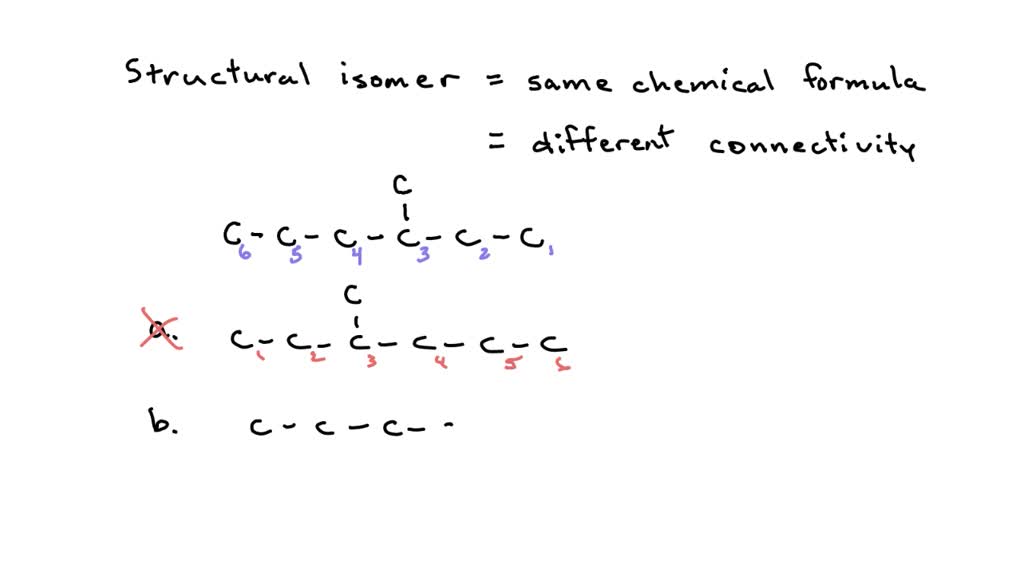 Structural isomer = same chemical formula
= different connectivity
C
C - C - C - C - C - C
6 5 4 3 2 1
C
a. C - C - C - C - C - C
1 2 3 4 5 6
b. C - C - C -